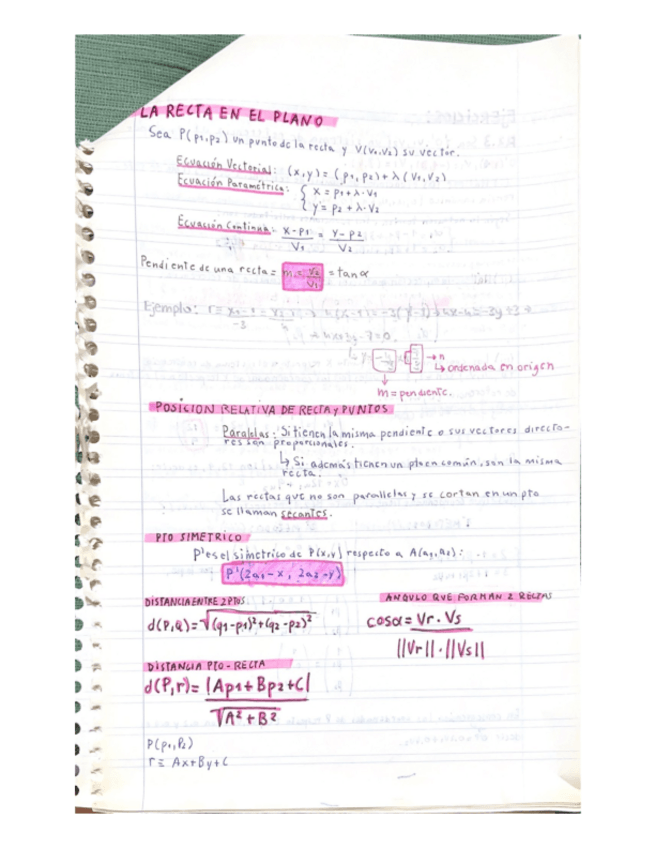 LA RECTA EN EL PLANO
Sea P(p1,p2) un punto de la recta y V(V1,V2) su vector.
Ecuación Vectorial: (x,y) = (p1,p2)+λ(V1,V2)
Ecuación Paramétrica: { x = p1+λ·V1
y = p2+λ·V2
Ecuación Continua: x-p1/V1 = y-p2/V2
Pendiente de una recta = m = V2/V1 = tan α
Ejemplo:
→ n
↳ ordenada en origen
m = pendiente.
POSICION RELATIVA DE RECTA y PUNTOS
Paralelas: Si tienen la misma pendiente o sus vectores directo-
res son proporcionales.
↳ Si además tienen un en común, son la misma
recta.
Las rectas que no son parallelas y se cortan en un pto
se llaman secantes.
PTO SIMETRICO
P' es el simetrico de P(x,y) respecto a A(a1,a2):
P'(2a1-x, 2a2-y)
DISTANCIA ENTRE 2 PTOS
d(P,Q)=√(q1-p1)²+(q2-p2)²
ANGULO QUE FORMAN 2 RECTAS
cosα = Vr · Vs / ||Vr||·||Vs||
DISTANCIA PTO-RECTA
d(P,r)= |Ap1+Bp2+C| / √A²+B²
P(p1,P2)
r≡ Ax+By+C